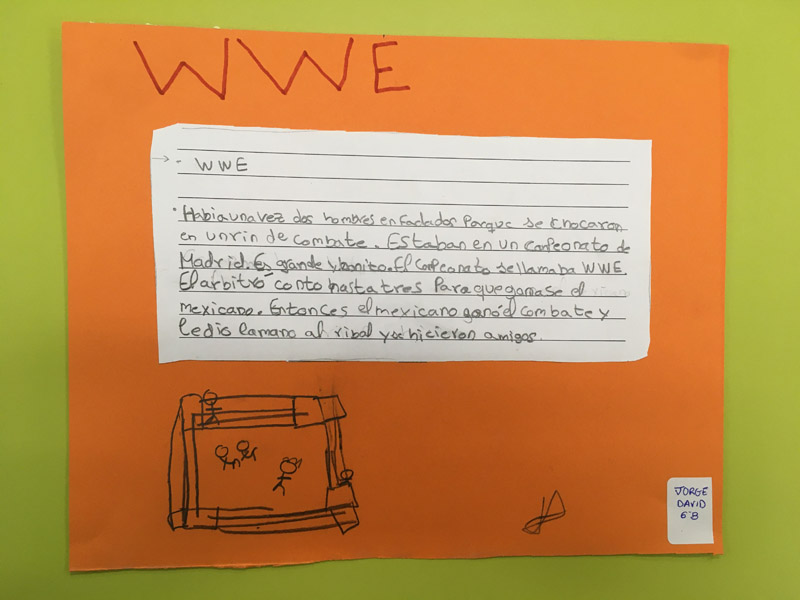 WWE
→ - WWE
Habia una vez dos hombres enfadados porque se chocaron
en un rin de combate. Estaban en un campeonato de
Madrid. Es grande y bonito. El campeonato se llamaba WWE
El arbitro conto hasta tres para que ganase el
mexicano. Entonces el mexicano ganó el combate y
le dio la mano al ribal y se hicieron amigos.
JORGE
DAVID
6ºB